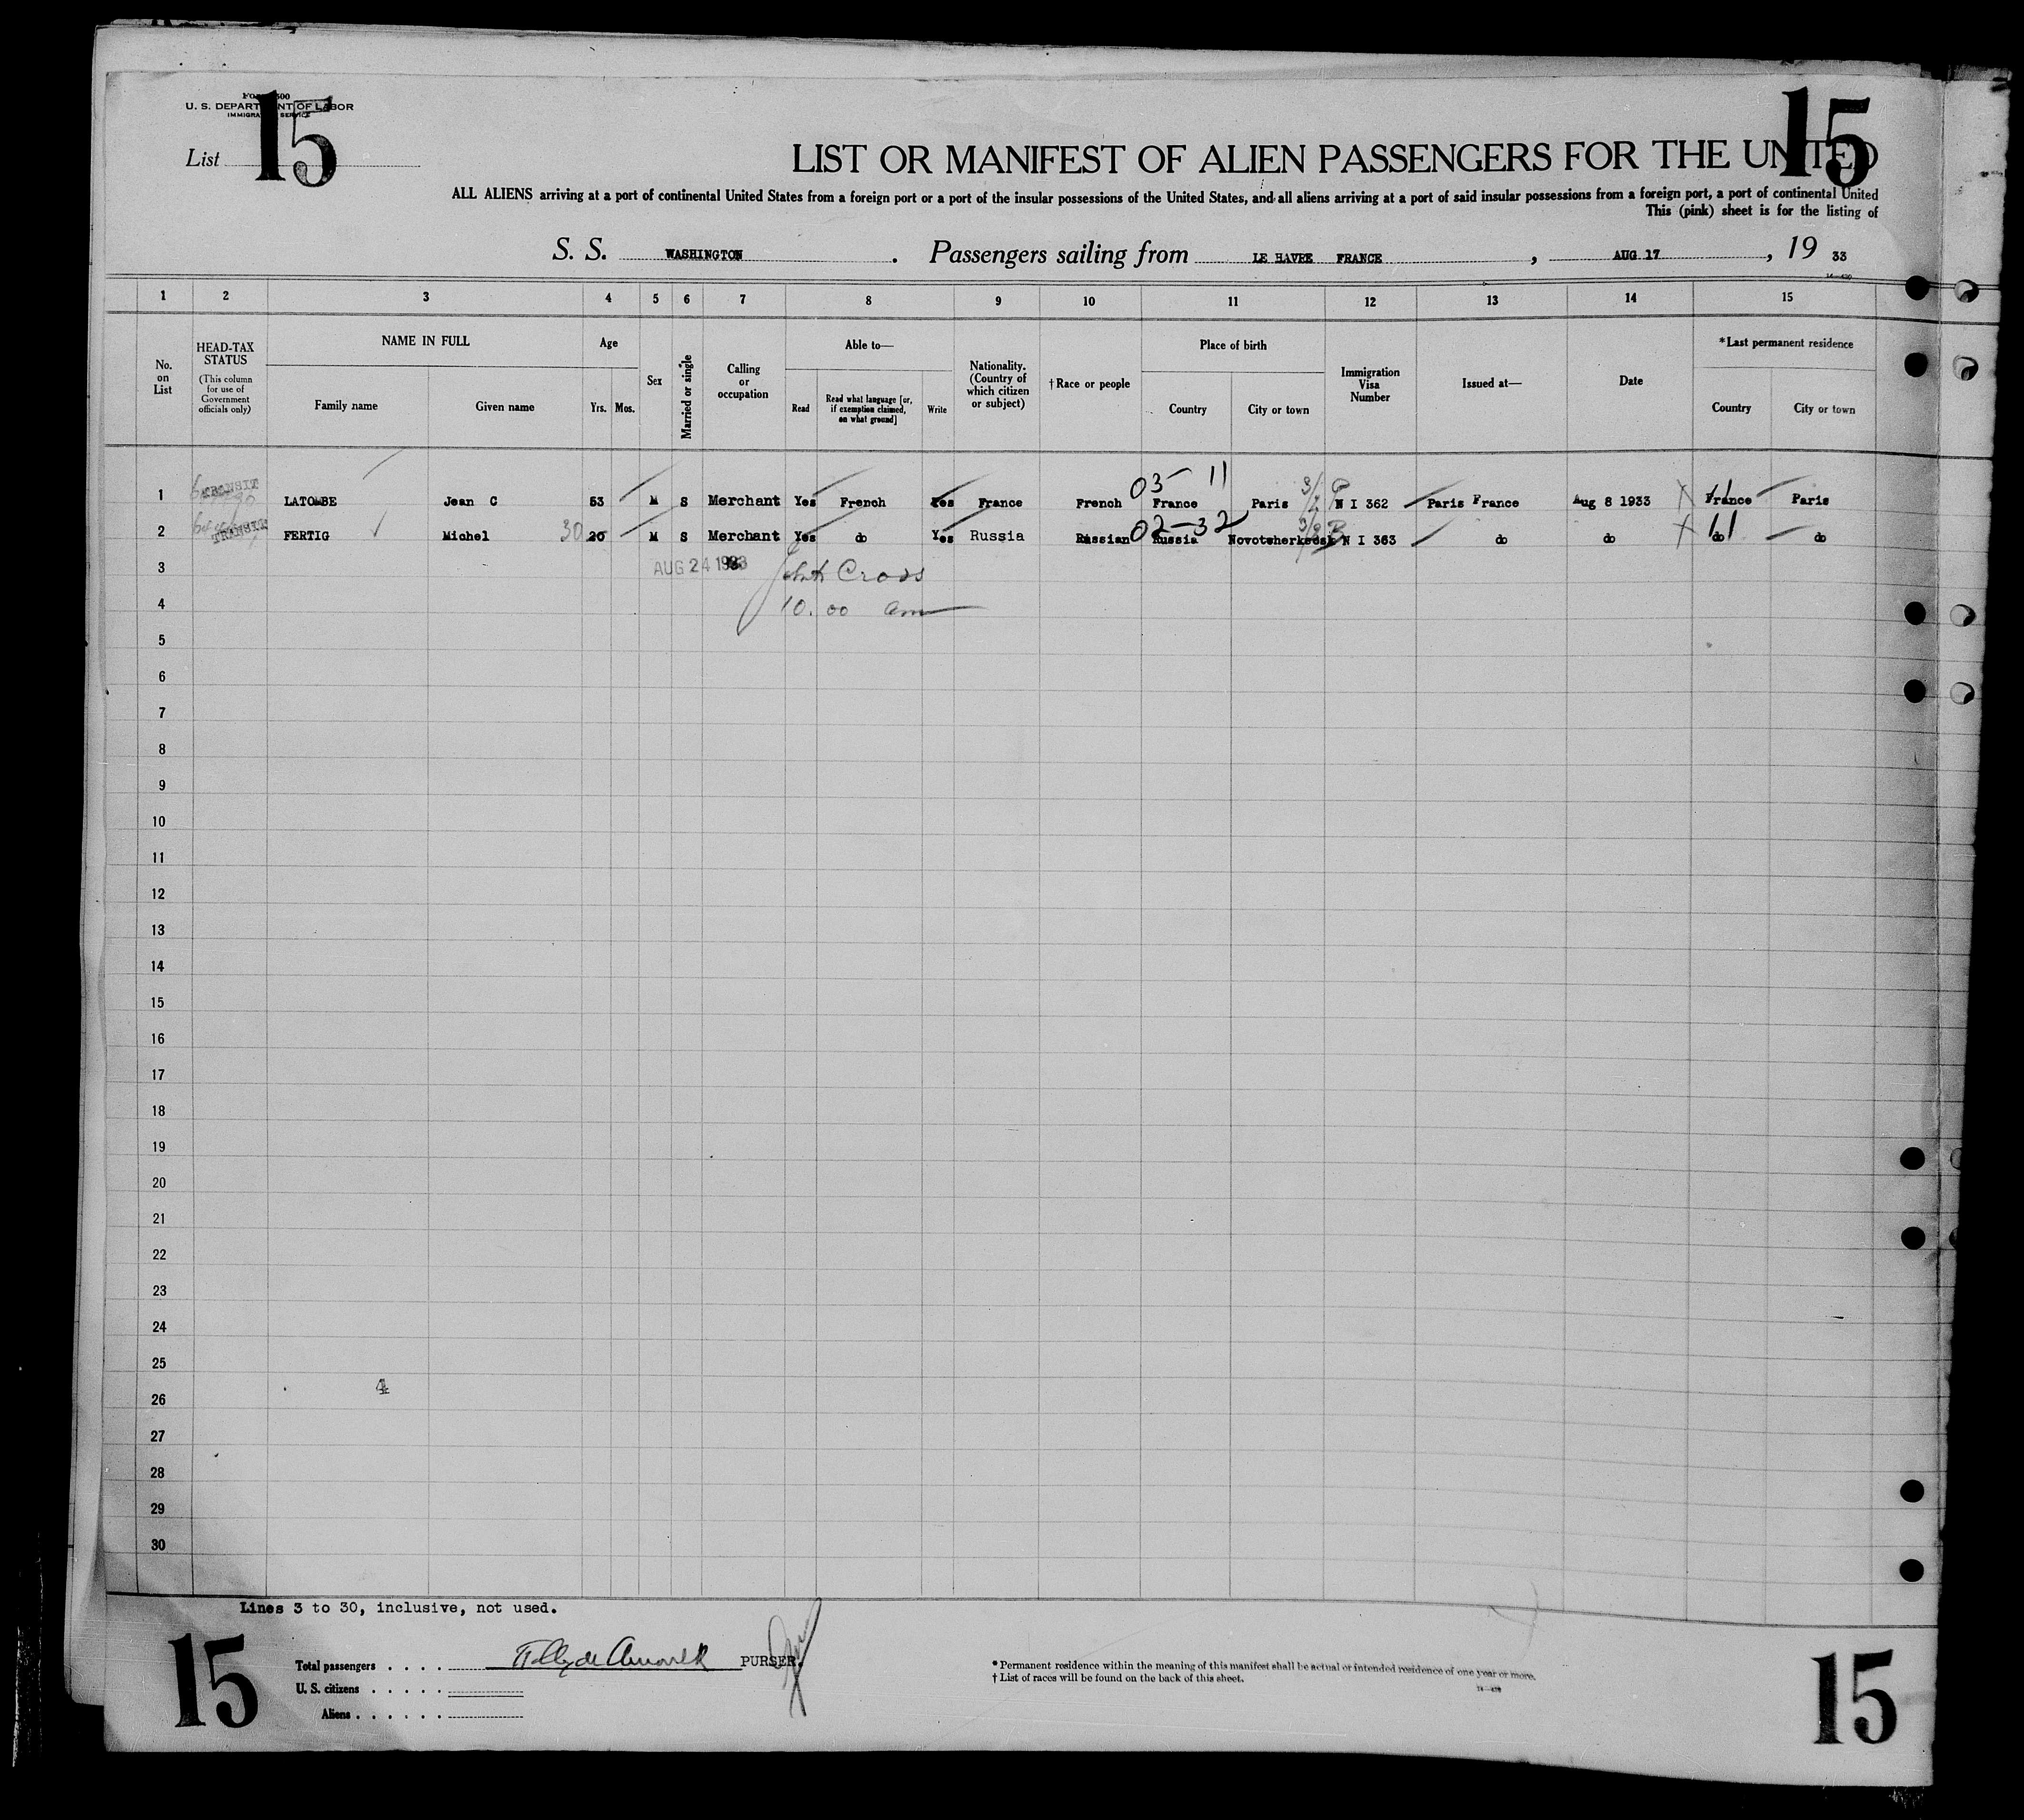 U. S. DEPARTMENT OF LABOR
IMMIGRATION SERVICE
List 15
15
LIST OR MANIFEST OF ALIEN PASSENGERS FOR THE UNITED
ALL ALIENS arriving at a port of continental United States from a foreign port or a port of the insular possessions of the United States, and all aliens arriving at a port of said insular possessions from a foreign port, a port of continental United
This (pink) sheet is for the listing of
S. S. WASHINGTON . Passengers sailing from LE HAVRE FRANCE , AUG 17 , 19 33
1 2 3 4 5 6 7 8 9 10 11 12 13 14 15
No. on List
HEAD-TAX STATUS (This column for use of Government officials only)
NAME IN FULL
Family name Given name
Age
Yrs. Mos.
Sex
Married or single
Calling or occupation
Able to—
Read Read what language [or, if exemption claimed, on what ground] Write
Nationality. (Country of which citizen or subject)
†Race or people
Place of birth
Country City or town
Immigration Visa Number
Issued at—
Date
*Last permanent residence
Country City or town
03 11
1 TRANSIT LATOMBE Jean C 53 M S Merchant Yes French Yes France French France Paris N I 362 Paris France Aug 8 1933 France Paris
02-32
2 TRANSIT FERTIG Michel 30 20 M S Merchant Yes do Yes Russia Russian Russia Novotcherkassk N I 363 do do do do
3 AUG 24 1933 Cross
4 10.00 am
5
6
7
8
9
10
11
12
13
14
15
16
17
18
19
20
21
22
23
24
25
4
26
27
28
29
30
Lines 3 to 30, inclusive, not used.
15
Total passengers . . . . PURSER.
U. S. citizens . . . . .
Aliens . . . . . .
* Permanent residence within the meaning of this manifest shall be actual or intended residence of one year or more.
† List of races will be found on the back of this sheet.
15